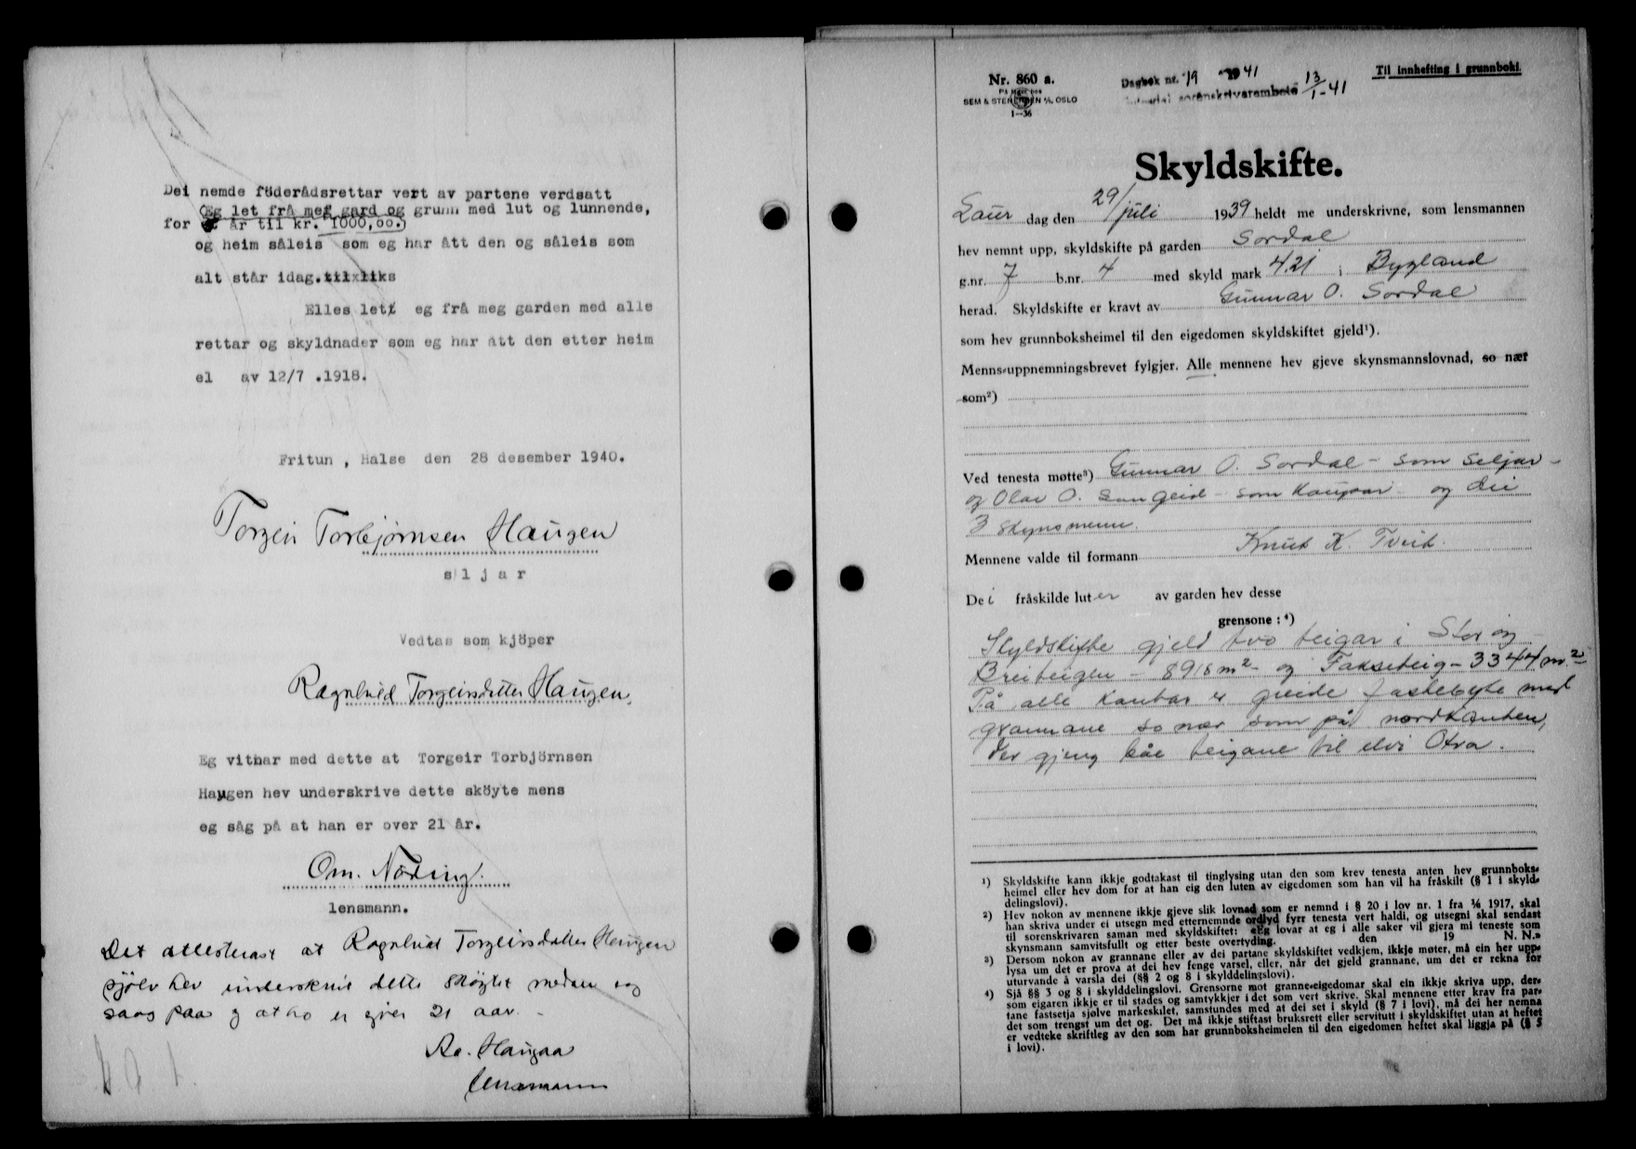 Dei nemde föderådsrettar vert av partene verdsatt
for år til kr. 1000,oo.
Eg let frå meg gard og grunn med lut og lunnende,
og heim såleis som eg har ått den og såleis som
alt står idag.
Elles lett eg frå meg garden med alle
rettar og skyldnader som eg har ått den etter heim
el av 12/7 .1918.
Fritun , Halse den 28 desember 1940.
Torgeir Torbjørnsen Haugen
s l j a r
Vedtas som kjöper
Ragnhild Torgeirsdatter Haugen.
Eg vitnar med dette at Torgeir Torbjörnsen
Haugen hev underskrive dette sköyte mens
eg såg på at han er over 21 år.
Om. Nöding.
lensmann.
Det attesterast at Ragnhild Torgeirsdatter Haugen
sjölv hev underskrive dette skøytet medan eg
saag paa og at ho er yver 21 aar.
Aa. Haugaa
lensmann
Nr. 860 a.
SEM & STENERSEN A/S, OSLO
1-36
Dagbok nr. 19 1941
sorenskrivarembete 13/1-41
Til innhefting i grunnboki.
Skyldskifte.
Laur dag den 29/juli 1939 heldt me underskrivne, som lensmannen
hev nemnt upp, skyldskifte på garden Sordal
g.nr. 7 b.nr. 4 med skyld mark 4.21 i Bygland
herad. Skyldskifte er kravt av Gunnar O. Sordal
som hev grunnboksheimel til den eigedomen skyldskiftet gjeld¹).
Menns-uppnemningsbrevet fylgjer. Alle mennene hev gjeve skynsmannslovnad, so nær
som²)
Ved tenesta møtte³) Gunnar O. Sordal - som seljar -
og Olav O. Langeid - som kaupar - og dei
3 skynsmenn.
Mennene valde til formann Knut K. Tveit.
Dei fråskilde luter av garden hev desse
grensone : ⁴)
Skyldskifte gjeld två teigar i Storøy
Breiteigen - 8918 m² - og Fakseteig - 3344 m.²
På alle kantar er greide fastebyte med
grannane so nær som på nordkanten,
der gjeng båe teigane til elvi Otra.
¹) Skyldskifte kann ikkje godtakast til tinglysing utan den som krev tenesta anten hev grunnboks-
heimel eller hev dom for at han eig den luten av eigedomen som han vil ha fråskilt (§ 1 i skyld-
delingslovi).
²) Hev nokon av mennene ikkje gjeve slik lovnad som er nemnd i § 20 i lov nr. 1 fra 1917, skal
han skriva under ei utsegn med etternemnde ordlyd fyrr tenesta vert haldi, og utsegni skal sendast
til sorenskrivaren saman med skyldskiftet: «Eg lovar at eg i alle saker vil gjera mi teneste som
skynsmann samvitsfullt og etter beste overtyding. den 19 N. N.»
³) Dersom nokon av grannane eller av dei partane skyldskiftet vedkjem, ikkje møter, må ein her upp-
lysa um det er prova at dei hev fenge varsel, eller, når det gjeld grannane, um det er rekna for
uturvande å varsla dei (§§ 2 og 8 i skylddelingslovi).
⁴) Sjå §§ 3 og 8 i skylddelingslovi. Grensorne mot granne-eigedomar skal ein ikkje skriva upp, der-
som eigaren ikkje er til stades og samtykkjer i det som vert skrive. Skal mennene etter krav fra par-
tane fastsetja sjølve markeskilet, samstundes med at dei set i skyld (§ 7 i lovi), må dei her nemna
det som trengst um det og. Det må ikkje stiftast bruksrett eller servitutt i skyldskiftet utan at heftet
er vedteke skriftleg av den som har grunnboksheimelen til den eigedomen heftet skal liggja på (§ 5
i lovi).